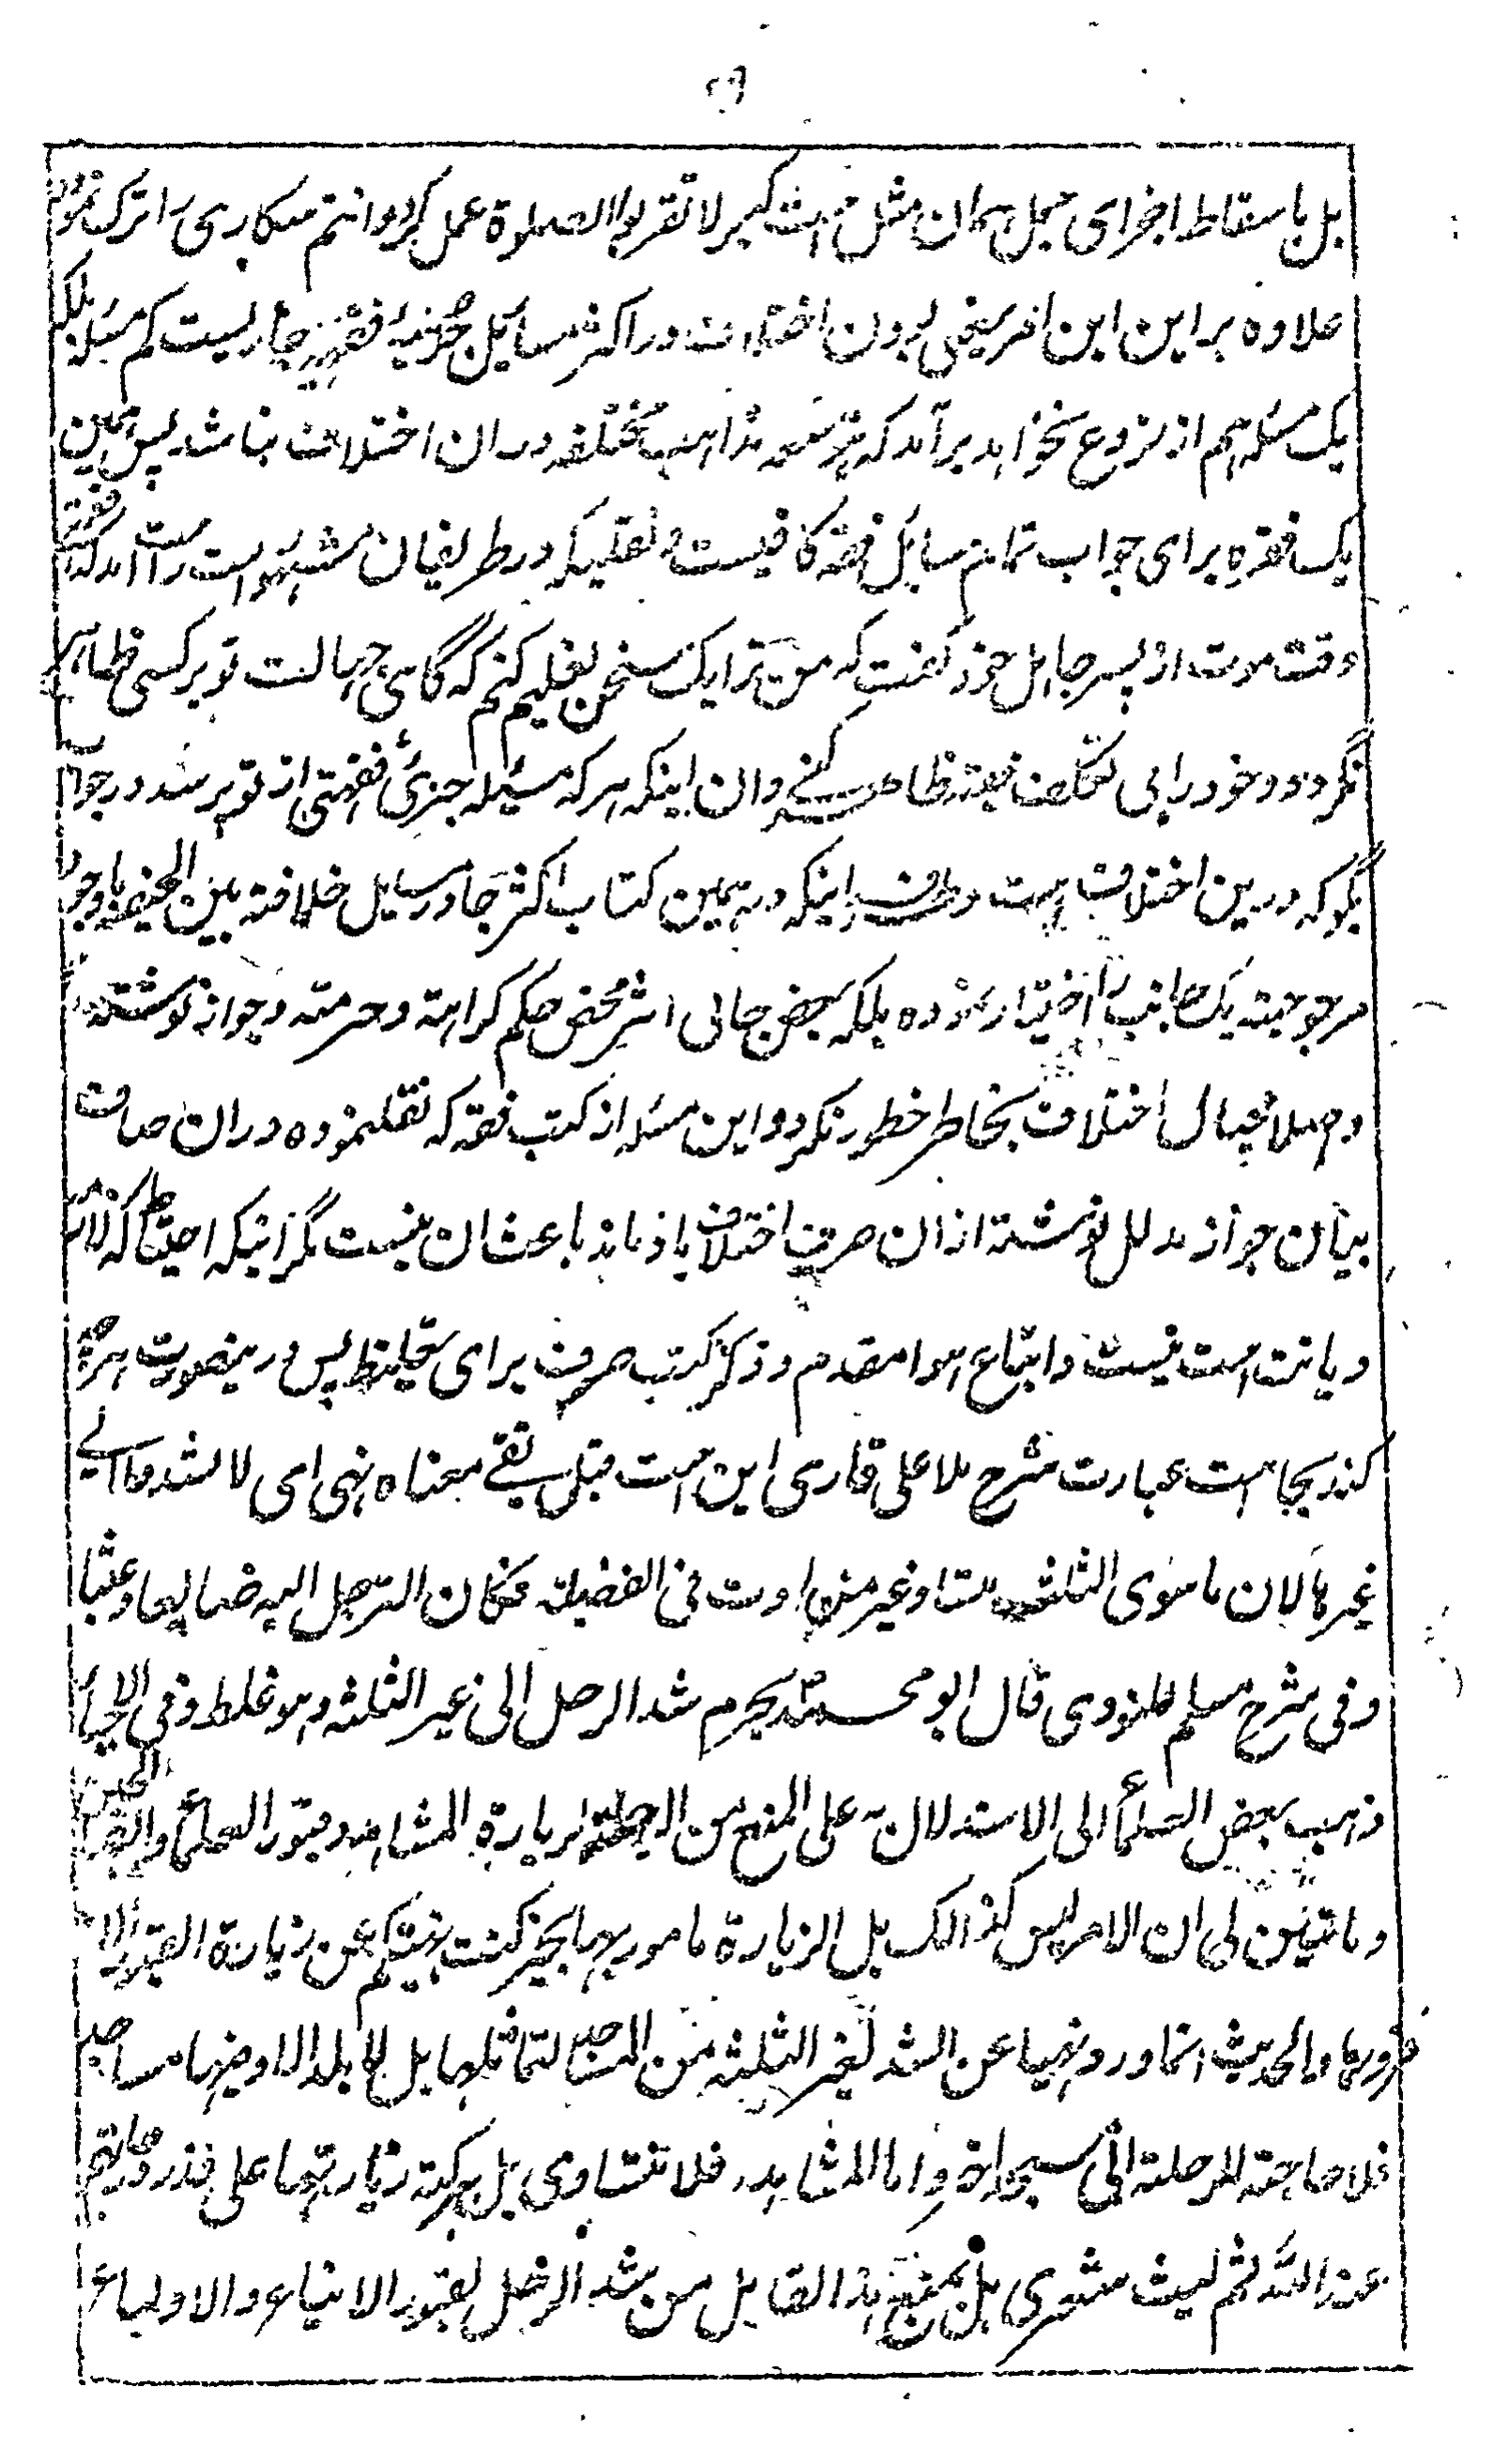 بل باسقاط اجزای جمل همان مثل است کبر لا تقربوا الصلوة عمل کرد و انتم سکاری را ترک نمود
علاوه براین این امر یعنی بودن اختلاف در اکثر مسایل جزئیه فقهیه جاریست کم مسئله بلکه
یک مسئله هم از فروع نخواهد برآمد که مذاهب مختلفه دران اختلاف نباشد پس همین
یک فقره برای جواب تمام مسایل فقه کافیست و نقلیکه در ظریفان مشهور است راست آمد که
وقت موت از پسر جاهل خود گفت که من ترا یک سخن تعلیم کنم که گاهی جهالت تو بر کسی ظاهر
نگردد و خود را بی تکلف فقیه ظاهر کنی و آن اینکه هر که مسئله جزئی فقهی از تو پرسد در جواب
بگو که درین اختلاف است و طرفه اینکه در همین کتاب اکثر جا در مسایل خلافیه بین الحنفیه باوجود
مرجوحیته یک جانب را اختیار نموده بلکه بعض جا لی اثر محض حکم کراهة و حرمته و جواز نوشته
و اصلا خیال اختلاف بخاطر خطور نکرد و این مسئله از کتب فقه که نقل نموده دران صاف
بیان جواز مدلل نوشته ازان صرف اختلاف یاد ماند باعث آن نیست مگر اینکه احتیاط که لازمه
دیانت است نیست و اتباع هوا مقدم و ذکر کتب صرف برای تغلیط پس درینصورت هرچه
کند بجا است عبارت شرح ملا علی قاری این است قیل نفی معناه نهی ای لا تشدوا الی
غیرها لان ما سوی الثلثة متساو غیر متفاوت فی الفضیلة فکان الترحل الیه ضایعا و عبثا
و فی شرح مسلم للنووی قال ابو محمد یحرم شد الرحل الی غیر الثلثة و هو غلط و فی الاحیاء
ذهب بعض العلماء الی الاستدلال به علی المنع من الرحلة لزیارة المشاهد و قبور العلماء والصالحین
و ما تبین لی ان الامر لیس کذالک بل الزیارة مامور بها بخبر کنت نهیتکم عن زیارة القبور الا
فزوروها والحدیث انما ورد نهیا عن الشد لغیر الثلثة من المساجد لتماثلها بل لا بلد الا و فیها مساجد
فلا حاجة للرحلة الی مسجد اخر و اما المشاهد فلا تتساوی بل برکة زیارتها علی قدر درجاتهم
عند الله ثم لیت شعری هل یمنع هذا القایل من شد الرحل لقبور الانبیاء والاولیاء